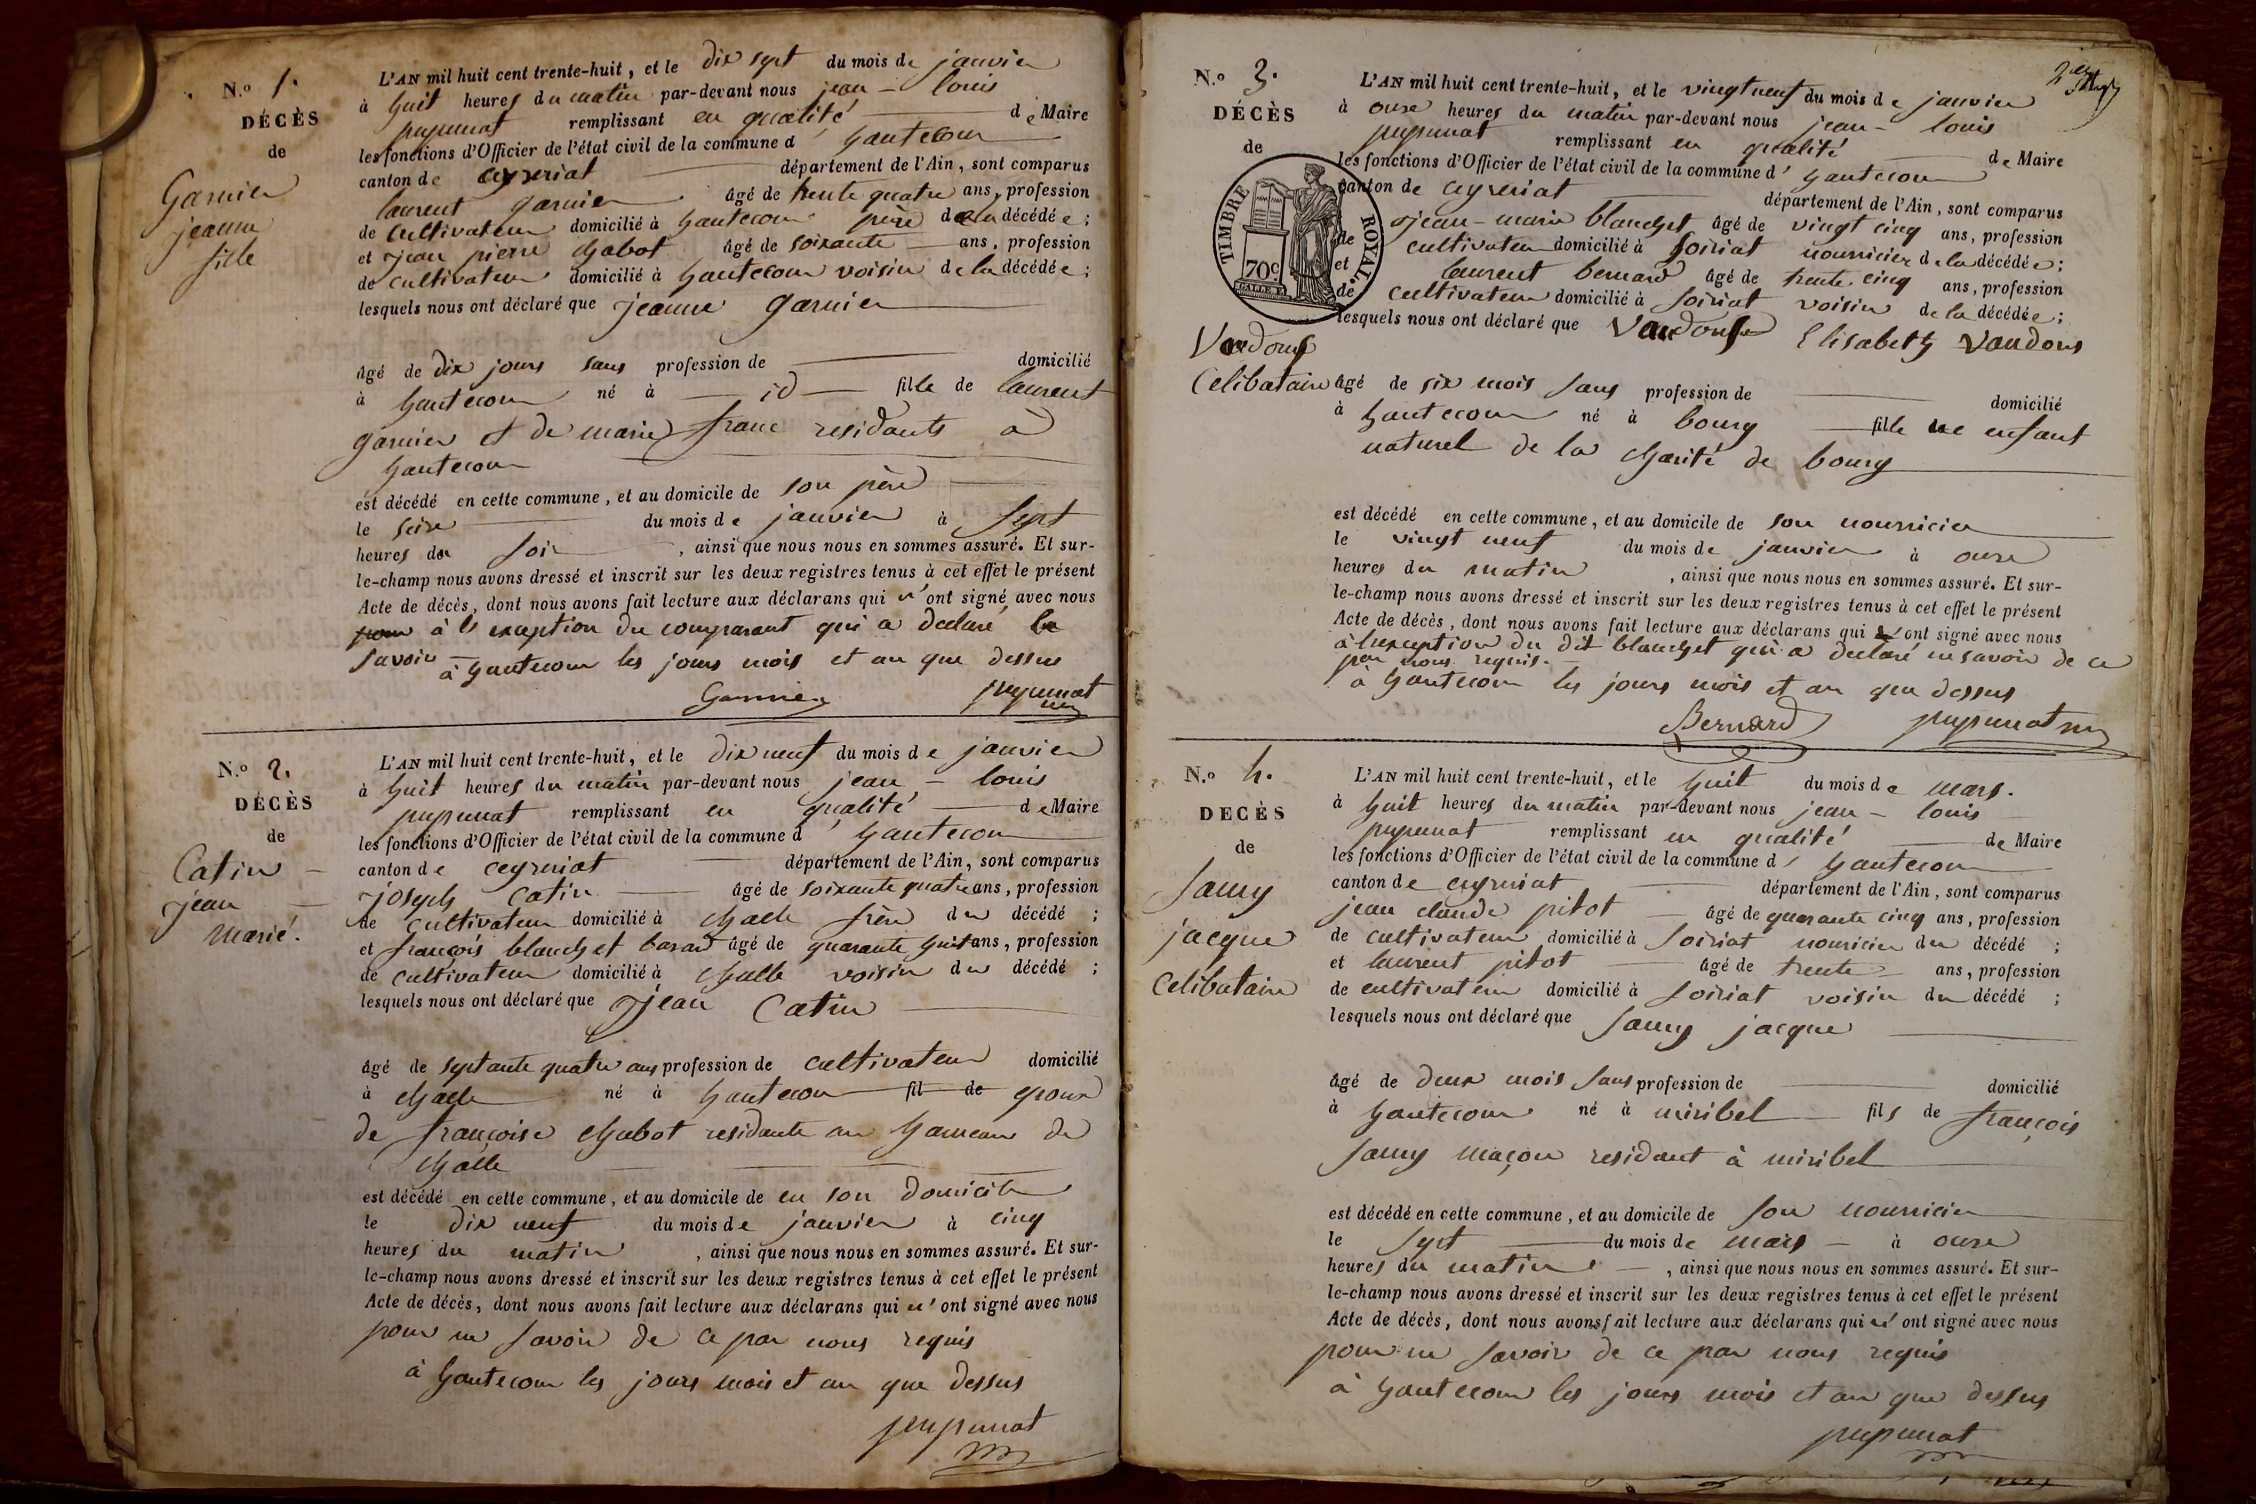 N.º 1.
DÉCÈS
de
Garnier
jeanne
fille
L'AN mil huit cent trente-huit, et le dix sept du mois de janvier
à huit heures du matin par-devant nous jean - louis
pupunat remplissant en qualité de Maire
les fonctions d'Officier de l'état civil de la commune d hautecour
canton de ceyzeriat département de l'Ain, sont comparus
laurent garnier âgé de trente quatre ans, profession
de cultivateur domicilié à hautecour père de la décédée ;
et jean pierre chabot âgé de soixante ans, profession
de cultivateur domicilié à hautecour voisin de la décédée ;
lesquels nous ont déclaré que jeanne garnier
âgé de dix jours sans profession de domicilié
à hautecour né à id fille de laurent
garnier et de marie franc residants à
hautecour
est décédé en cette commune, et au domicile de son père
le seize du mois de janvier à sept
heures du soir , ainsi que nous nous en sommes assuré. Et sur-
le-champ nous avons dressé et inscrit sur les deux registres tenus à cet effet le présent
Acte de décès, dont nous avons fait lecture aux déclarans qui n' ont signé avec nous
pour à l'exception du comparant qui a declaré le
savoir
à hautecour les jours mois et an que dessus
Garnier pupunat
N.º 2.
DÉCÈS
de
Catin
jean
marié.
L'AN mil huit cent trente-huit, et le dix neuf du mois de janvier
à huit heures du matin par-devant nous jean - louis
pupunat remplissant en qualité de Maire
les fonctions d'Officier de l'état civil de la commune d hautecour
canton de ceyzeriat département de l'Ain, sont comparus
joseph Catin âgé de soixante quatre ans, profession
de cultivateur domicilié à challe frère du décédé ;
et françois blanchet âgé de quarante huit ans, profession
de cultivateur domicilié à challe voisin du décédé ;
lesquels nous ont déclaré que jean Catin
âgé de septante quatre ans profession de cultivateur domicilié
à challe né à hautecour fil de epoux
de françoise chabot residante au hameau de
challe
est décédé en cette commune, et au domicile de en son domicile
le dix neuf du mois de janvier à cinq
heures du matin , ainsi que nous nous en sommes assuré. Et sur-
le-champ nous avons dressé et inscrit sur les deux registres tenus à cet effet le présent
Acte de décès, dont nous avons fait lecture aux déclarans qui n' ont signé avec nous
pour ne savoir de ce par nous requis
à hautecour les jours mois et an que dessus
pupunat
N.º 3.
DÉCÈS
de
TIMBRE ROYAL.
70c
Vaudous
Celibataire
L'AN mil huit cent trente-huit, et le vingt neuf du mois de janvier
à onze heures du matin par-devant nous jean - louis
pupunat remplissant en qualité de Maire
les fonctions d'Officier de l'état civil de la commune d' hautecour
canton de ceyzeriat département de l'Ain, sont comparus
jean-marie blanchet âgé de vingt cinq ans, profession
de cultivateur domicilié à soiriat nourricier de la décédée ;
et laurent bernard âgé de trente cinq ans, profession
de cultivateur domicilié à soiriat voisin de la décédée ;
lesquels nous ont déclaré que Elisabeth Vaudous
âgé de six mois sans profession de domicilié
à hautecour né à bourg fille enfant
naturel de la charité de bourg
est décédé en cette commune, et au domicile de son nourricier
le vingt neuf du mois de janvier à onze
heures du matin , ainsi que nous nous en sommes assuré. Et sur-
le-champ nous avons dressé et inscrit sur les deux registres tenus à cet effet le présent
Acte de décès, dont nous avons fait lecture aux déclarans qui ont signé avec nous
à l'exception du dit blanchet qui a declaré ne savoir de ce
par nous requis.
à hautecour les jours mois et an que dessus
Bernard pupunat
N.º 4.
DÉCÈS
de
Samy
jacque
Celibataire
L'AN mil huit cent trente-huit, et le huit du mois de mars.
à huit heures du matin par-devant nous jean - louis
pupunat remplissant en qualité de Maire
les fonctions d'Officier de l'état civil de la commune d' hautecour
canton de ceyzeriat département de l'Ain, sont comparus
jean claude pitot âgé de quarante cinq ans, profession
de cultivateur domicilié à soiriat nouricier du décédé ;
et laurent pitot âgé de trente ans, profession
de cultivateur domicilié à soiriat voisin du décédé ;
lesquels nous ont déclaré que Samy jacque
âgé de deux mois sans profession de domicilié
à hautecour né à miribel fils de françois
Samy maçon residant à miribel
est décédé en cette commune, et au domicile de son nourricier
le sept du mois de mars à onze
heures du matin , ainsi que nous nous en sommes assuré. Et sur-
le-champ nous avons dressé et inscrit sur les deux registres tenus à cet effet le présent
Acte de décès, dont nous avons fait lecture aux déclarans qui n' ont signé avec nous
pour ne savoir de ce par nous requis
à hautecour les jours mois et an que dessus
pupunat